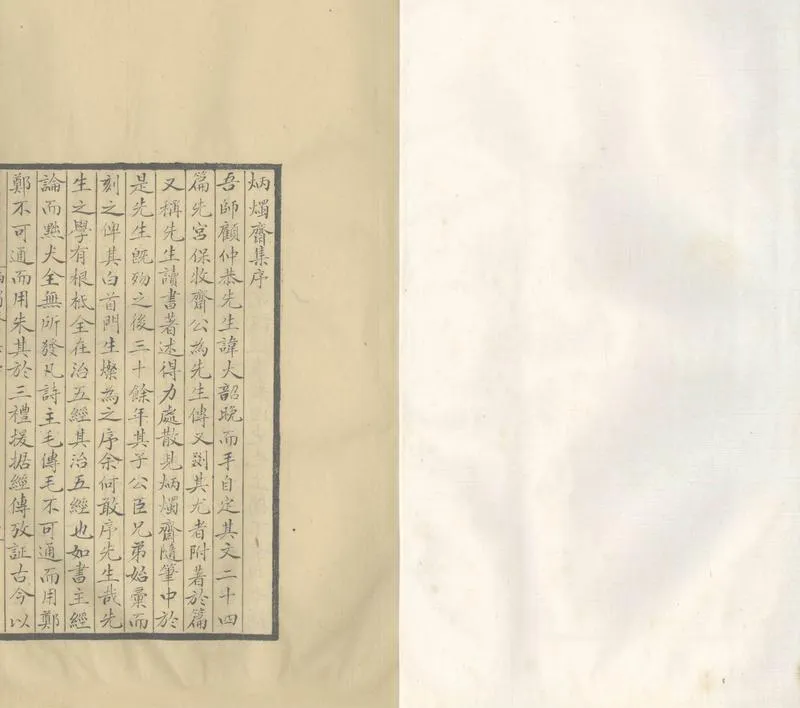 炳燭齋集序
吾師顧仲恭先生諱大韶晚而手自定其文二十四
篇先宮保牧齋公為先生傳又剟其尤者附著於篇
又稱先生讀書著述得力處散見炳燭齋隨筆中於
是先生既歿之後三十餘年其子公臣兄弟始彙而
刻之俾其白首門生燦為之序余何敢序先生哉先
生之學有根柢全在治五經其治五經也如書主經
論而㸃犬全無所發凡詩主毛傳毛不可通而用鄭
鄭不可通而用朱其於三禮援据經傳攷証古今以